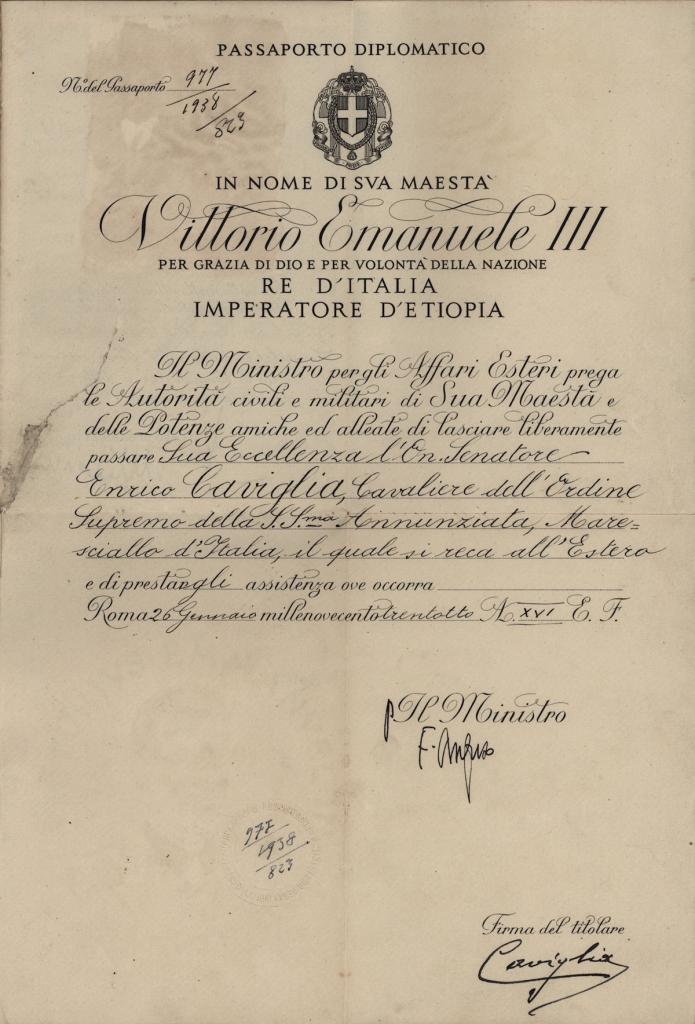 PASSAPORTO DIPLOMATICO
N.º del Passaporto 977
1938
823
IN NOME DI SVA MAESTA'
Vittorio Emanuele III
PER GRAZIA DI DIO E PER VOLONTA' DELLA NAZIONE
RE D'ITALIA
IMPERATORE D'ETIOPIA
Il Ministro per gli Affari Esteri prega
le Autorità civili e militari di Sua Maestà e
delle Potenze amiche ed alleate di lasciare liberamente
passare Sua Eccellenza l'On. Senatore
Enrico Caviglia, Cavaliere dell'Ordine
Supremo della S.S.ma Annunziata, Mare=
sciallo d'Italia, il quale si reca all'Estero
e di prestargli assistenza ove occorra
Roma 26 Gennaio millenovecentotrentotto A. XVI E. F.
p Il Ministro
F.
977
1938
823
Firma del titolare
Caviglia